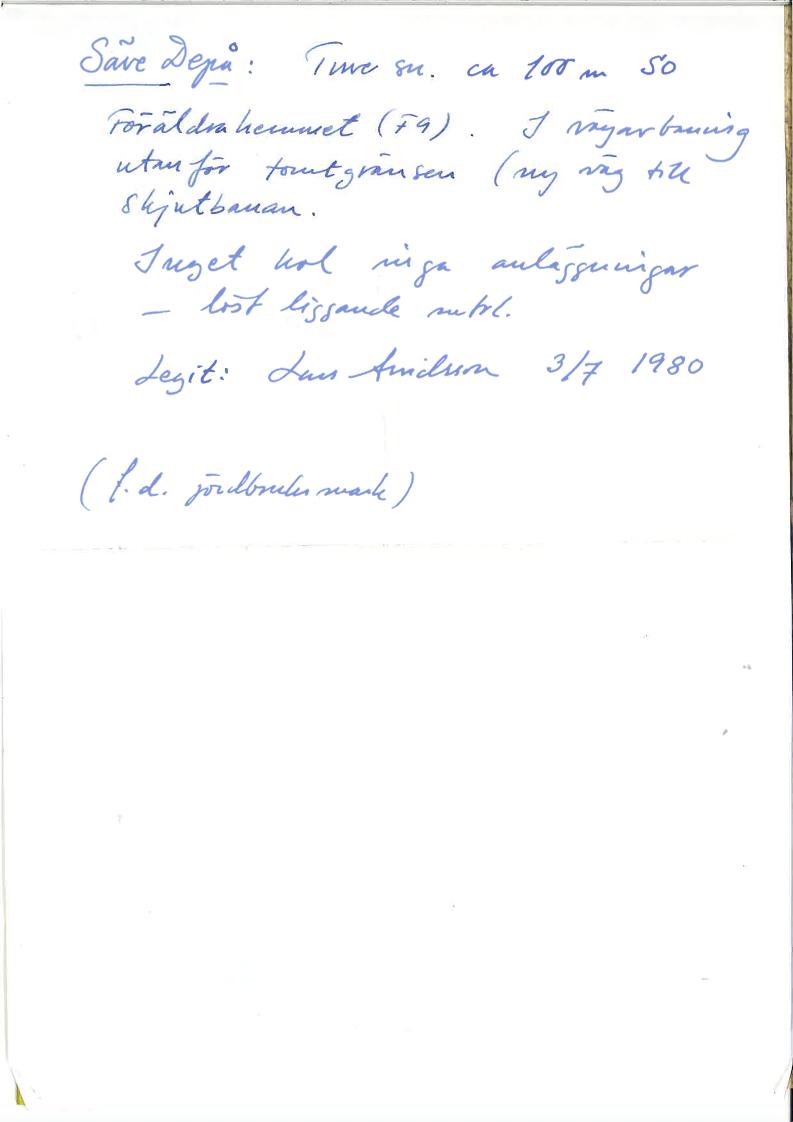 Säve Depå: Tuve sn. ca 100 m SO
Föräldrahemmet (F9). I vägarbaning
utanför tomtgränsen (ny väg till
skjutbanan.
Inget kol inga anläggningar
– löst liggande mtrl.
Legit: Lars Arvidsson 3/7 1980
(f.d. jordbruksmark)